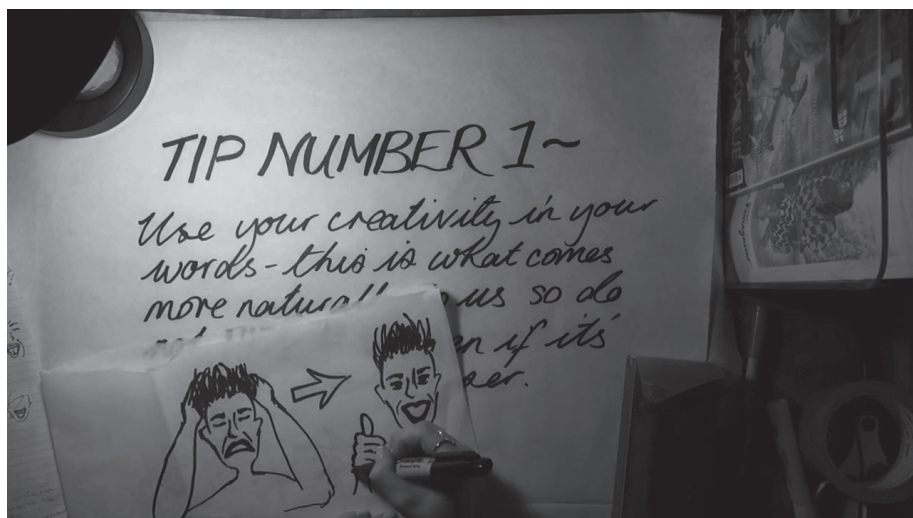 TIP NUMBER 1~
Use your creativity in your
words - this is what comes
more us so do
if it's